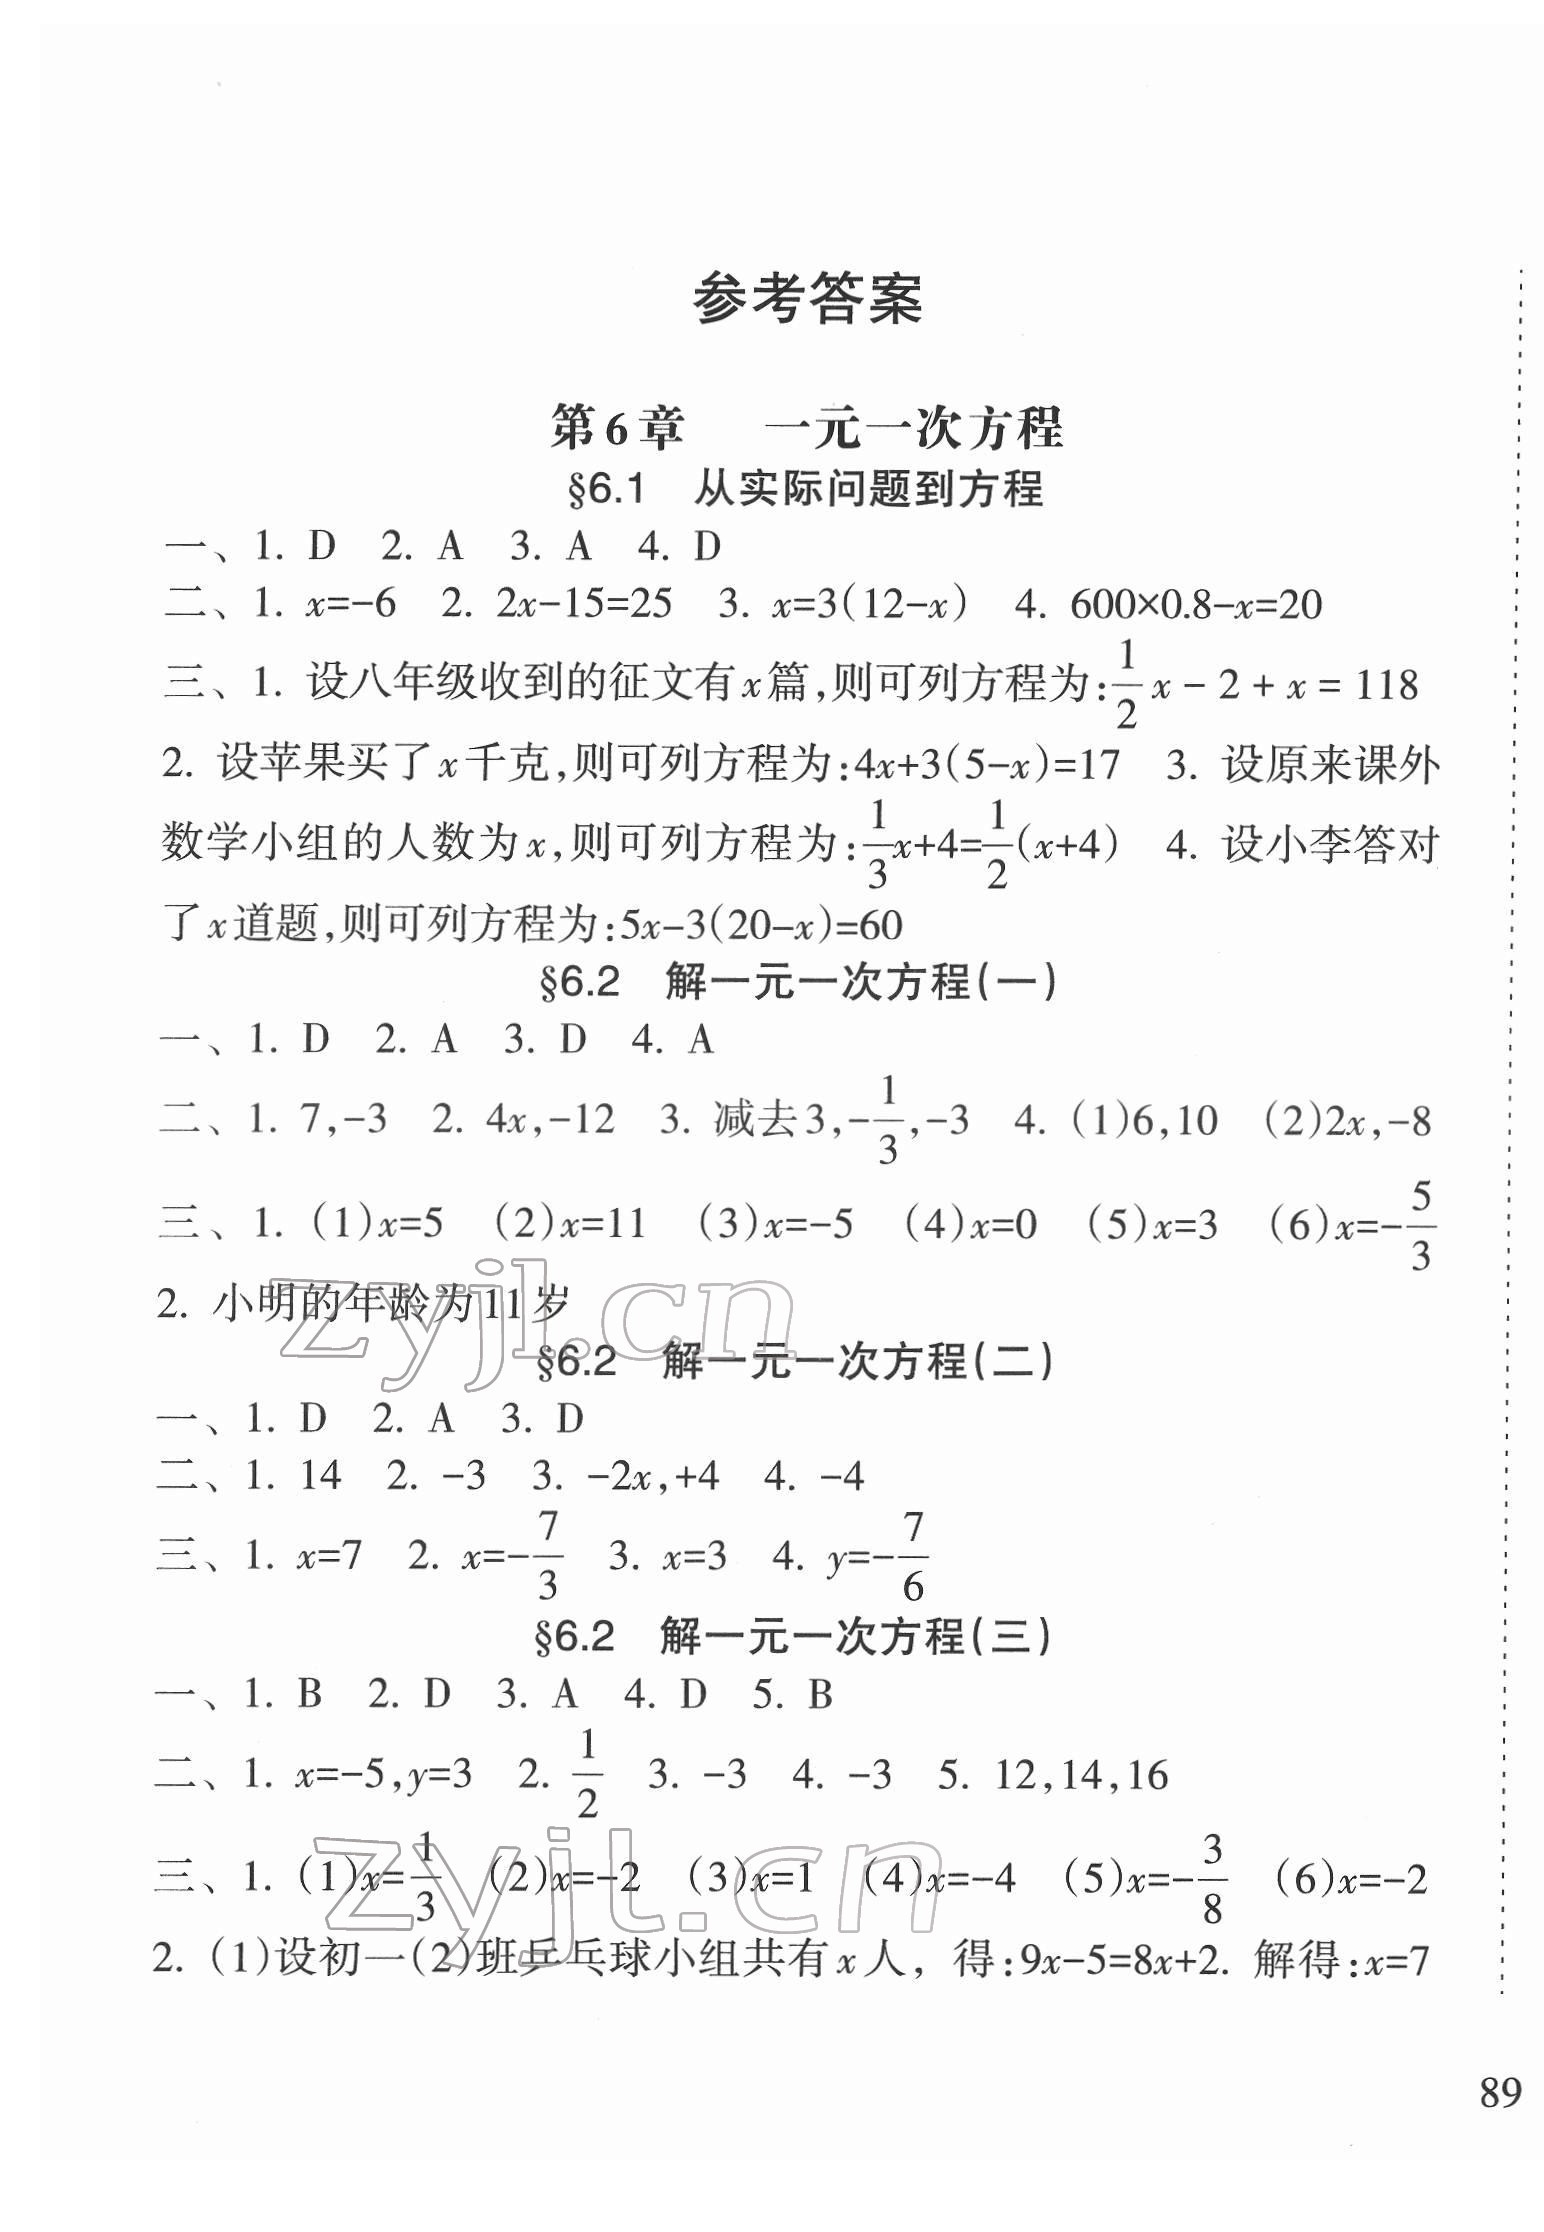 参考答案
第6章 一元一次方程
§6.1 从实际问题到方程
一、1. D 2. A 3. A 4. D
二、1. x=-6 2. 2x-15=25 3. x=3(12-x) 4. 600×0.8-x=20
三、1. 设八年级收到的征文有x篇,则可列方程为:1/2 x - 2 + x = 118
2. 设苹果买了x千克,则可列方程为:4x+3(5-x)=17 3. 设原来课外
数学小组的人数为x,则可列方程为:1/3 x+4=1/2(x+4) 4. 设小李答对
了x道题,则可列方程为:5x-3(20-x)=60
§6.2 解一元一次方程(一)
一、1. D 2. A 3. D 4. A
二、1. 7,-3 2. 4x,-12 3. 减去3,-1/3,-3 4. (1)6,10 (2)2x,-8
三、1. (1)x=5 (2)x=11 (3)x=-5 (4)x=0 (5)x=3 (6)x=-5/3
2. 小明的年龄为11岁
zyjl.cn
§6.2 解一元一次方程(二)
一、1. D 2. A 3. D
二、1. 14 2. -3 3. -2x,+4 4. -4
三、1. x=7 2. x=-7/3 3. x=3 4. y=-7/6
§6.2 解一元一次方程(三)
一、1. B 2. D 3. A 4. D 5. B
二、1. x=-5,y=3 2. 1/2 3. -3 4. -3 5. 12,14,16
三、1. (1)x=1/3 (2)x=-2 (3)x=1 (4)x=-4 (5)x=-3/8 (6)x=-2
zyjl.cn
2. (1)设初一(2)班乒乓球小组共有x人, 得:9x-5=8x+2. 解得:x=7
89